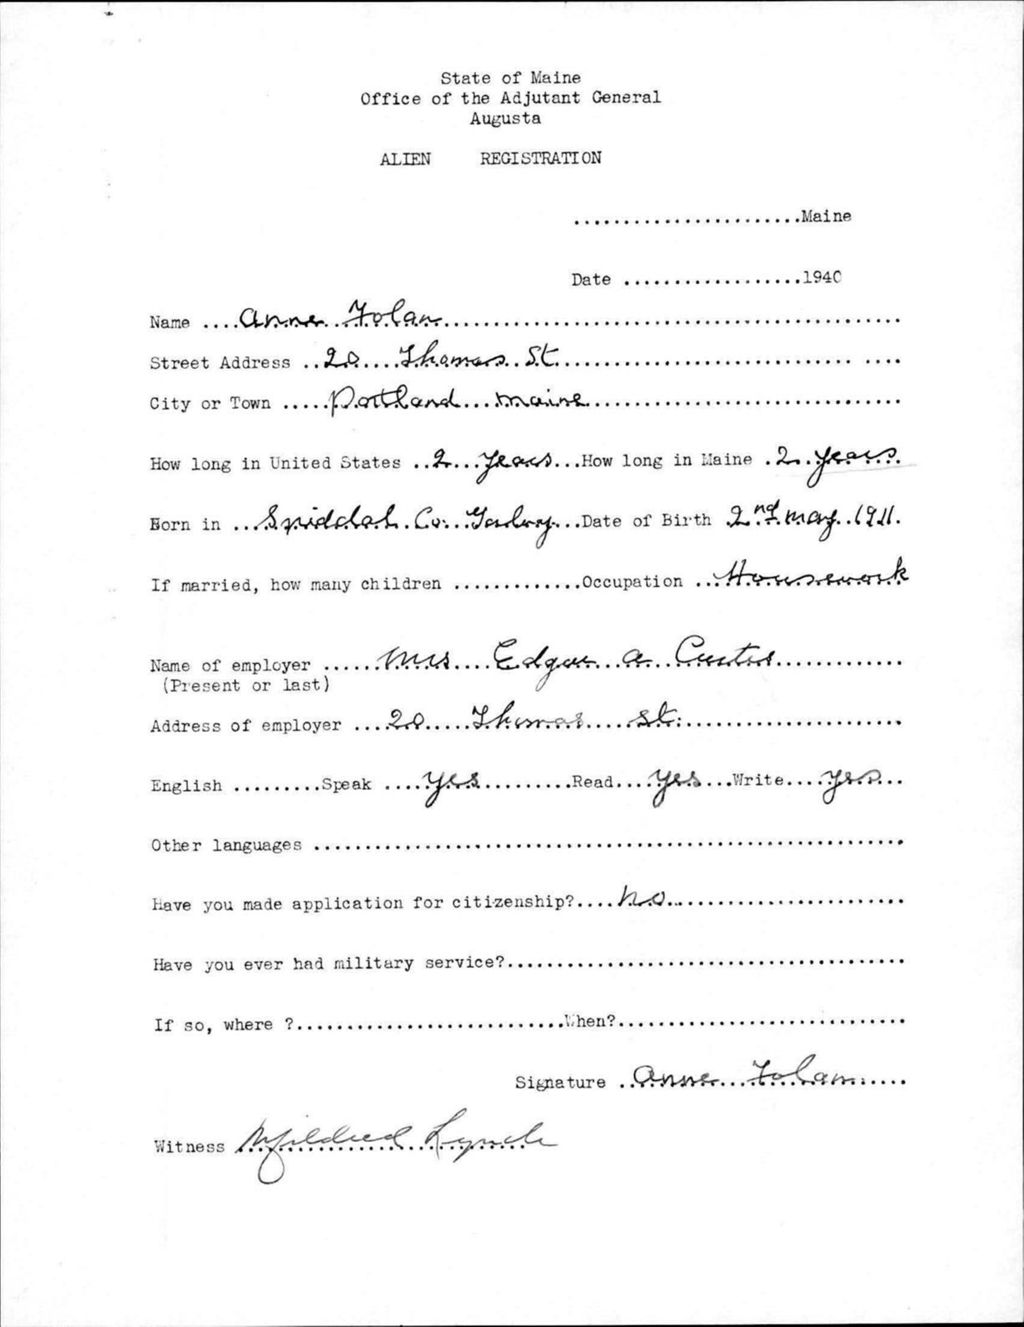 State of Maine
Office of the Adjutant General
Augusta
ALIEN REGISTRATION
.......................Maine
Date ..................1940
Name ....Anne Folan..........................................
Street Address ..20....Thomas..St............................. ....
City or Town .....Portland...Maine...............................
How long in United States ..2...years...How long in Maine .2..years.
Born in ...Spiddal.Co..Galway...Date of Birth .2nd.May..1911.
If married, how many children .............Occupation ...Housework
Name of employer .....Mrs....Edgar...A..Curtis.............
(Present or last)
Address of employer ....20.....Thomas.....St......................
English .........Speak ....yes..........Read....yes...Write....yes...
Other languages ..........................................................
Have you made application for citizenship?....no..........................
Have you ever had military service?.......................................
If so, where ?..........................When?............................
Signature ..Anne...Folan......
Witness Mildred Lynch